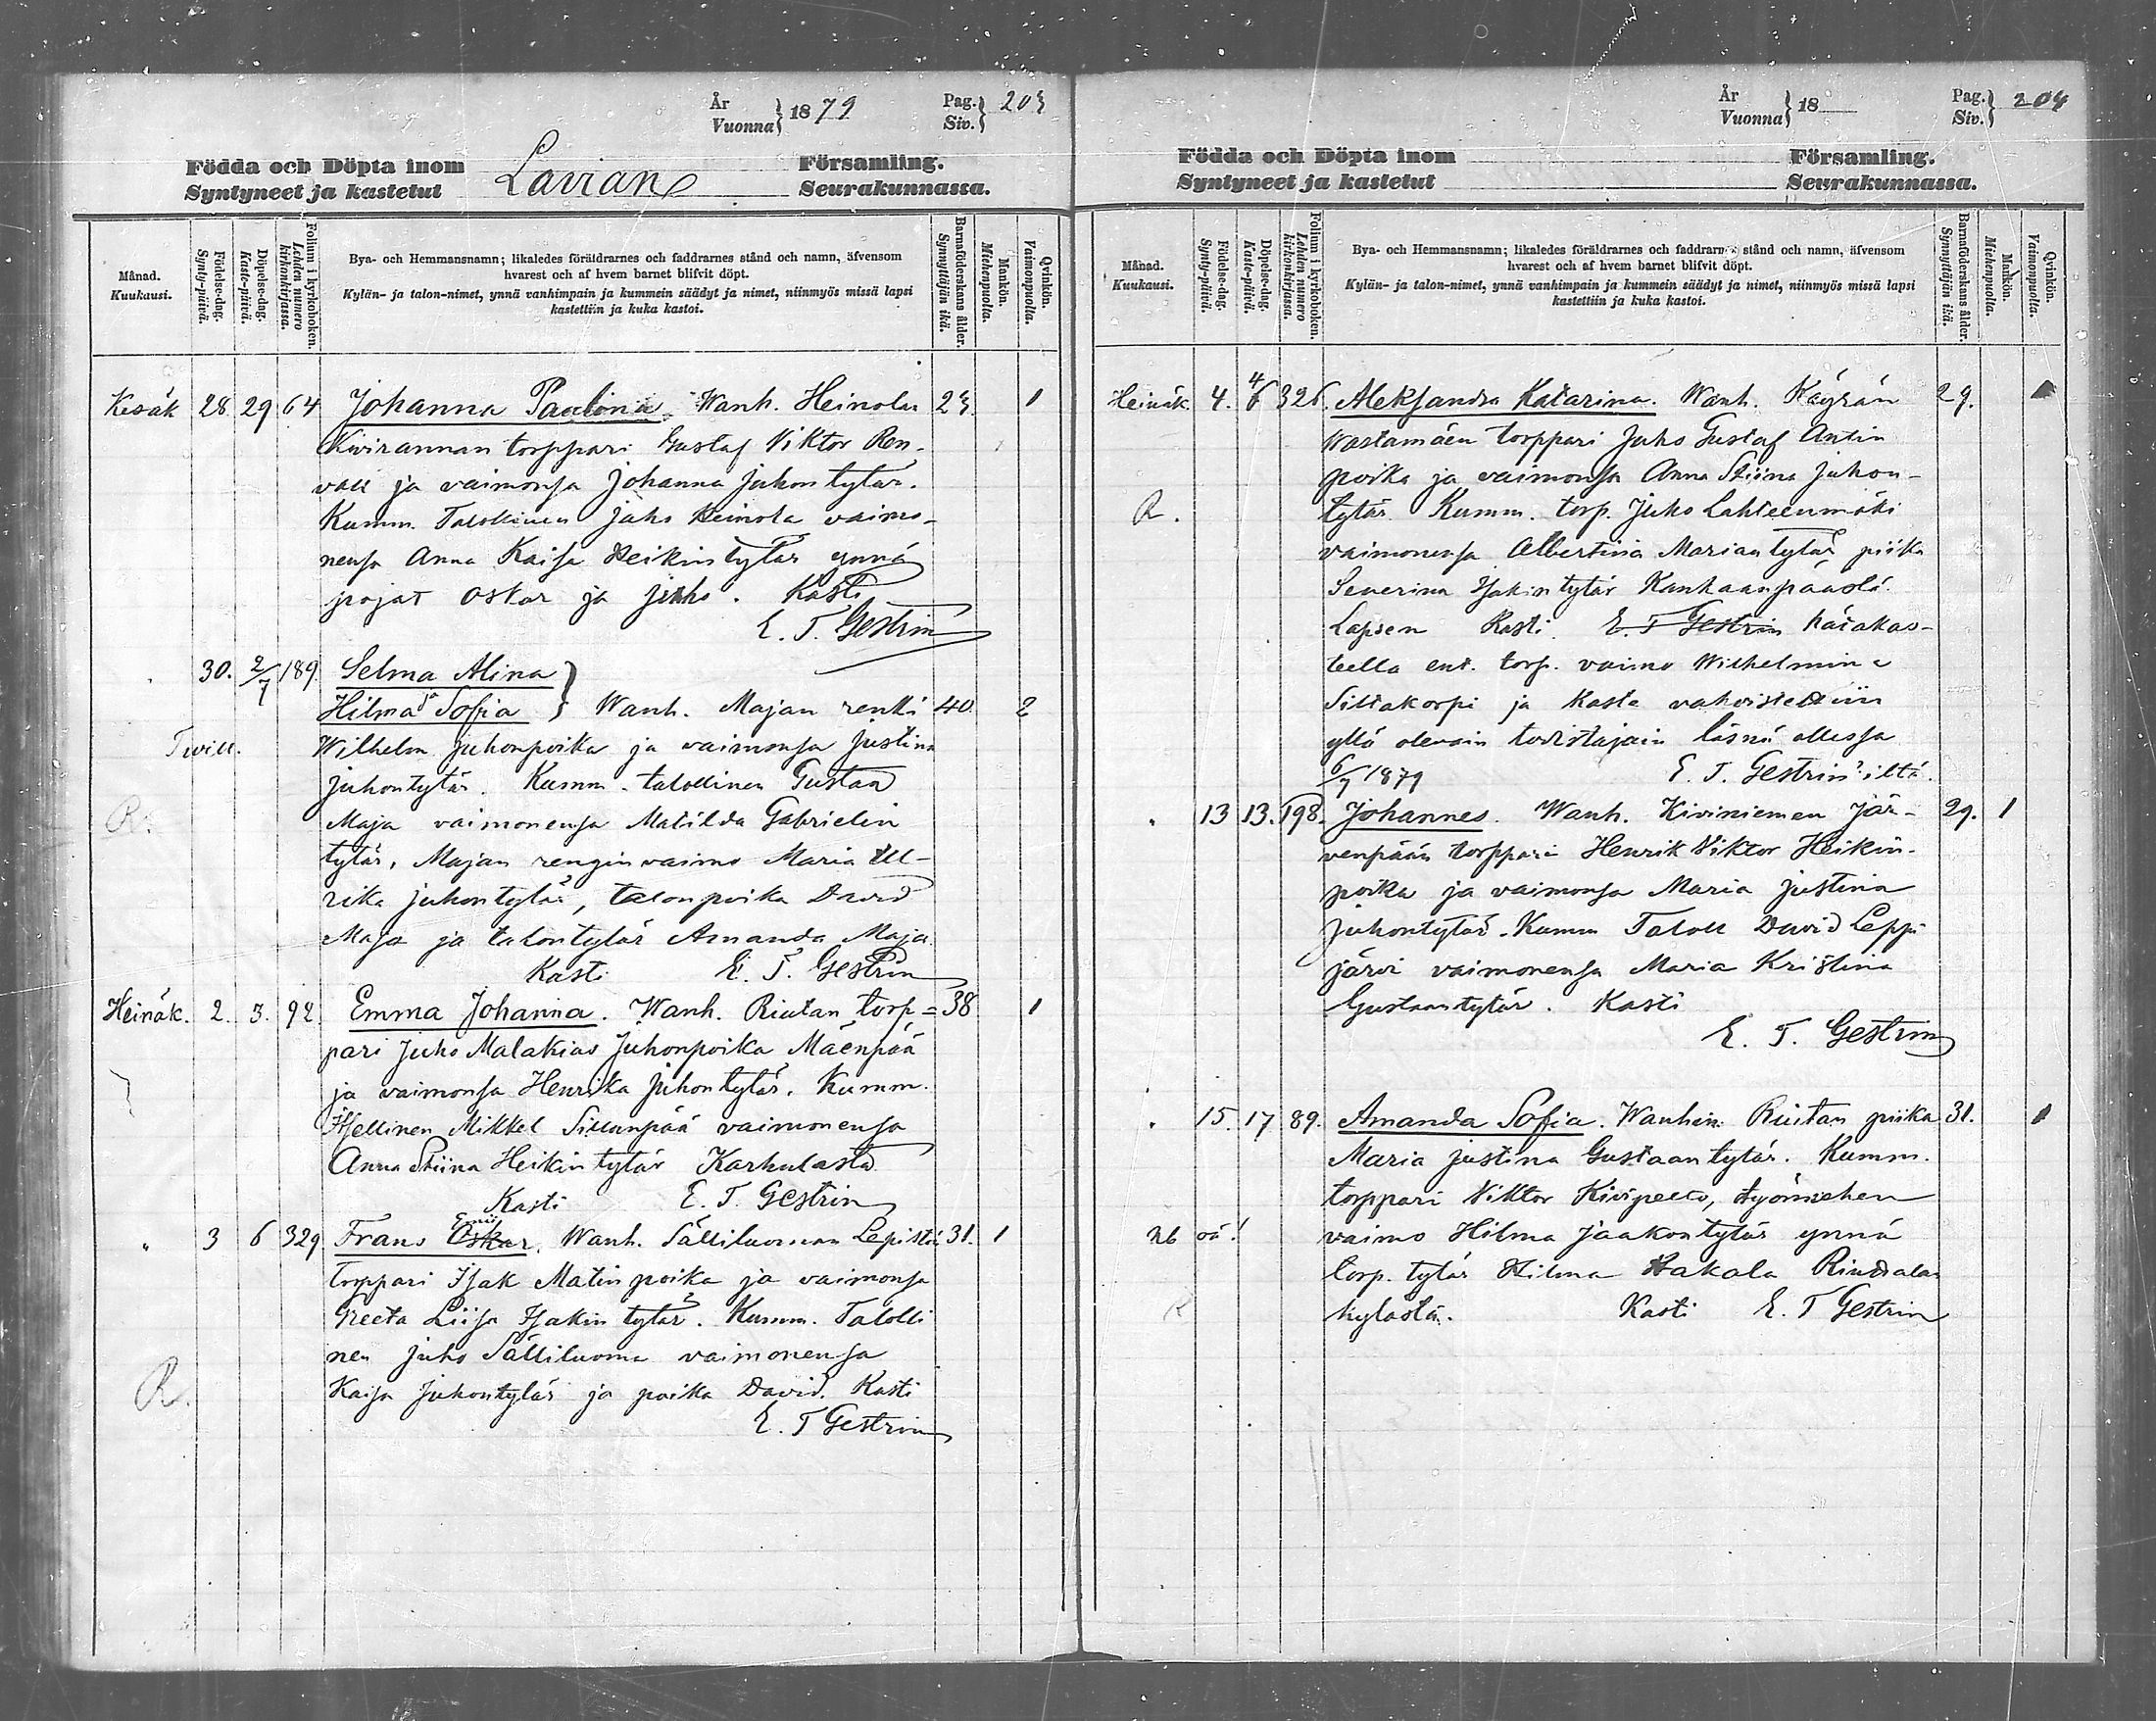 År Vuonna } 1879 Pag. Siv. } 203
Födda och Döpta inom Lavian Församling.
Syntyneet ja kastetut Seurakunnassa.
Månad. Kuukausi.
Födelse-dag. Synty-päivä.
Döpelse-dag. Kaste-päivä.
Folium i kyrkoboken. Lehden numero kirkonkirjassa.
Bya- och Hemmansnamn; likaledes föräldrarnes och faddrarnes stånd och namn, äfvensom
hvarest och af hvem barnet blifvit döpt.
Kylän- ja talon-nimet, ynnä vanhimpain ja kummein säädyt ja nimet, niinmyös missä lapsi
kastettiin ja kuka kastoi.
Barnaföderskans ålder. Synnyttäjän ikä.
Mankön. Miehenpuolia.
Qvinkön. Vaimonpuolia.
Kesäk 28 29 64 Johanna Paulina. Wanh. Heinolan 23. 1
Kivirannan torppari Gustaf Viktor Ren-
vall ja vaimonsa Johanna Juhontytär.
Kumm. Talollinen Juho Heinola vaimo-
nensa Anna Kaisa Heikintytär ynnä
pojat Oskar ja Juho. Kasti
E. T. Gestrin
30. 2/7 189 Selma Alina
ja
Hilma Sofia } Wanh. Majan renki 40 2
Twill. Wilhelm Juhonpoika ja vaimonsa Justina
Juhontytär. Kumm. talollinen Gustaa
R. Maja vaimonensa Matilda Gabrielin
tytär, Majan rengin vaimo Maria Ul-
rika Juhontytär, talonpoika David
Maja ja talontytär Amanda Maja
Kasti E. T. Gestrin
Heinäk. 2. 3. 92. Emma Johanna. Wanh. Riutan torp= 38 1
pari Juho Malakias Juhonpoika Mäenpää
ja vaimonsa Henrika Juhontytär. Kumm.
Itsellinen Mikkel Sillanpää vaimonensa
Anna Stiina Heikintytär Karhulasta
Kasti E. T. Gestrin
" 3 6 329 Frans Oskar. Wanh. Sälliluoman Lepistön 31. 1
torppari Isak Matinpoika ja vaimonsa
Greeta Liisa Isakintytär. Kumm. Talolli
nen Juho Sälliluoma vaimonensa
R. Kaisa Juhontytär ja poika David. Kasti
E. T Gestrin
År Vuonna } 18 Pag. Siv. } 204
Födda och Döpta inom Församling.
Syntyneet ja kastetut Seurakunnassa.
Månad. Kuukausi.
Födelse-dag. Synty-päivä.
Döpelse-dag. Kaste-päivä.
Folium i kyrkoboken. Lehden numero kirkonkirjassa.
Bya- och Hemmansnamn; likaledes föräldrarnes och faddrarnes stånd och namn, äfvensom
hvarest och af hvem barnet blifvit döpt.
Kylän- ja talon-nimet, ynnä vanhimpain ja kummein säädyt ja nimet, niinmyös missä lapsi
kastettiin ja kuka kastoi.
Barnaföderskans ålder. Synnyttäjän ikä.
Mankön. Miehenpuolia.
Qvinkön. Vaimonpuolia.
Heinäk. 4. 4 6 326. Aleksandra Katarina. Wanh. Käyrän 29. 1
Wastamäen torppari Juho Gustaf Antin
poika ja vaimonsa Anna Stiina Juhon-
R. tytär. Kumm. torp. Juho Lahteenmäki
vaimonensa Albertina Mariantytär piika
Severina Isakintytär Kankaanpäästä.
Lapsen Kasti E. T Gestrin hätäkas-
teella ent. torp. vaimo Wilhelmina
Siltakorpi ja kaste vahvistettiin
yllä olevain todistajain läsnä ollessa
6/7 1879 E. T. Gestrin'iltä.
" 13 13. 198. Johannes. Wanh. Kiviniemen Jär- 29. 1
venpään torppari Henrik Viktor Heikin-
poika ja vaimonsa Maria Justina
Juhontytär. Kumm Taloll David Leppi
järvi vaimonensa Maria Kristina
Gustaantytär. Kasti
E. T. Gestrin
" 15. 17 89. Amanda Sofia. Wanhin: Riutan piika 31. 1
Maria Justina Gustaantytär. Kumm.
torppari Viktor Kivipelto, työmiehen
Nb oä! vaimo Hilma Jaakontytär ynnä
torp. tytär Hilma Hakala Riudtalan
R kylästä. Kasti E. T Gestrin